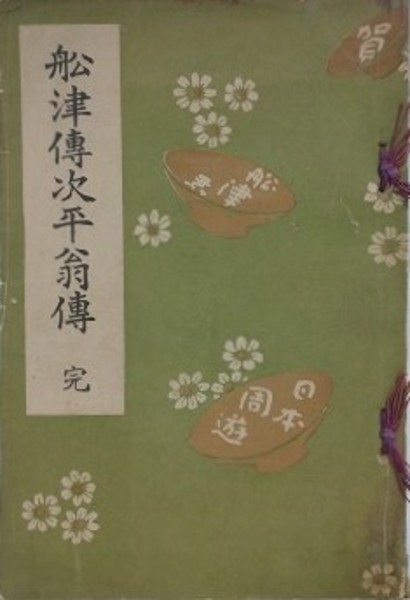 船津傳次平翁傳 完
賀
船津
日本
周遊